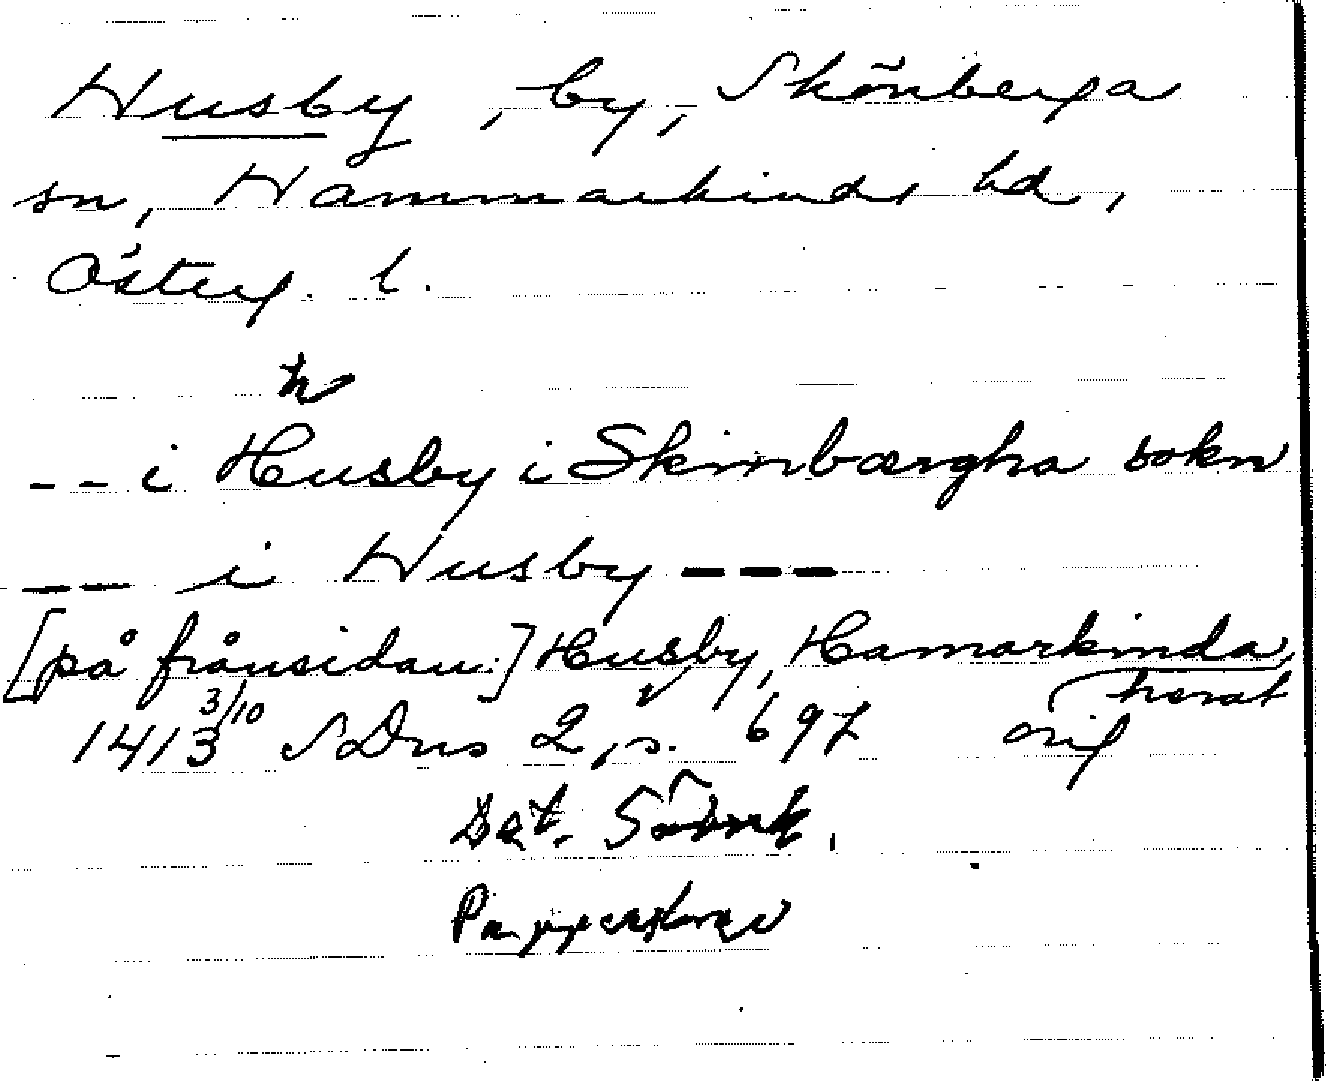 Husby, by, Skönberga
sn, Hammarkinds hd,
Österg. l.
-- i Husby i Skinbærgha sokn
-- i Husby ---
[på frånsidan:] Husby, Hamarkinda
hærat
1413 3/10 SDns 2, s. 697 orig
Dat. Söderk.
Pappersbrev